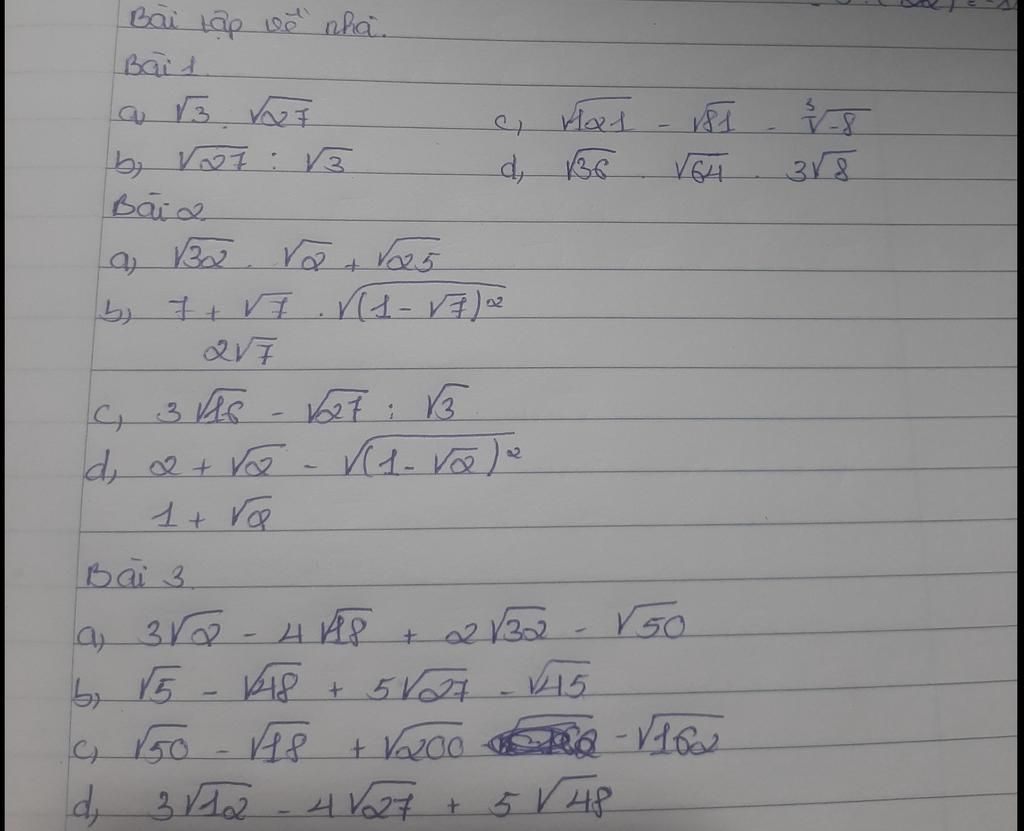 Bài tập về nhà.
Bài 1
a, √3 . √27 c, √121 - √81 - ∛-8
b, √27 : √3 d, √36 . √64 . 3√8
Bài 2
a, √32 . √2 + √25
b, 7 + √7 . √(1 - √7)²
2√7
c, 3√16 - √27 : √3
d, 2 + √2 - √(1 - √2)²
1 + √2
Bài 3
a, 3√2 - 4√18 + 2√32 - √50
b, √5 - √48 + 5√27 - √45
c, √50 - √18 + √200 - √162
d, 3√12 - 4√27 + 5√48